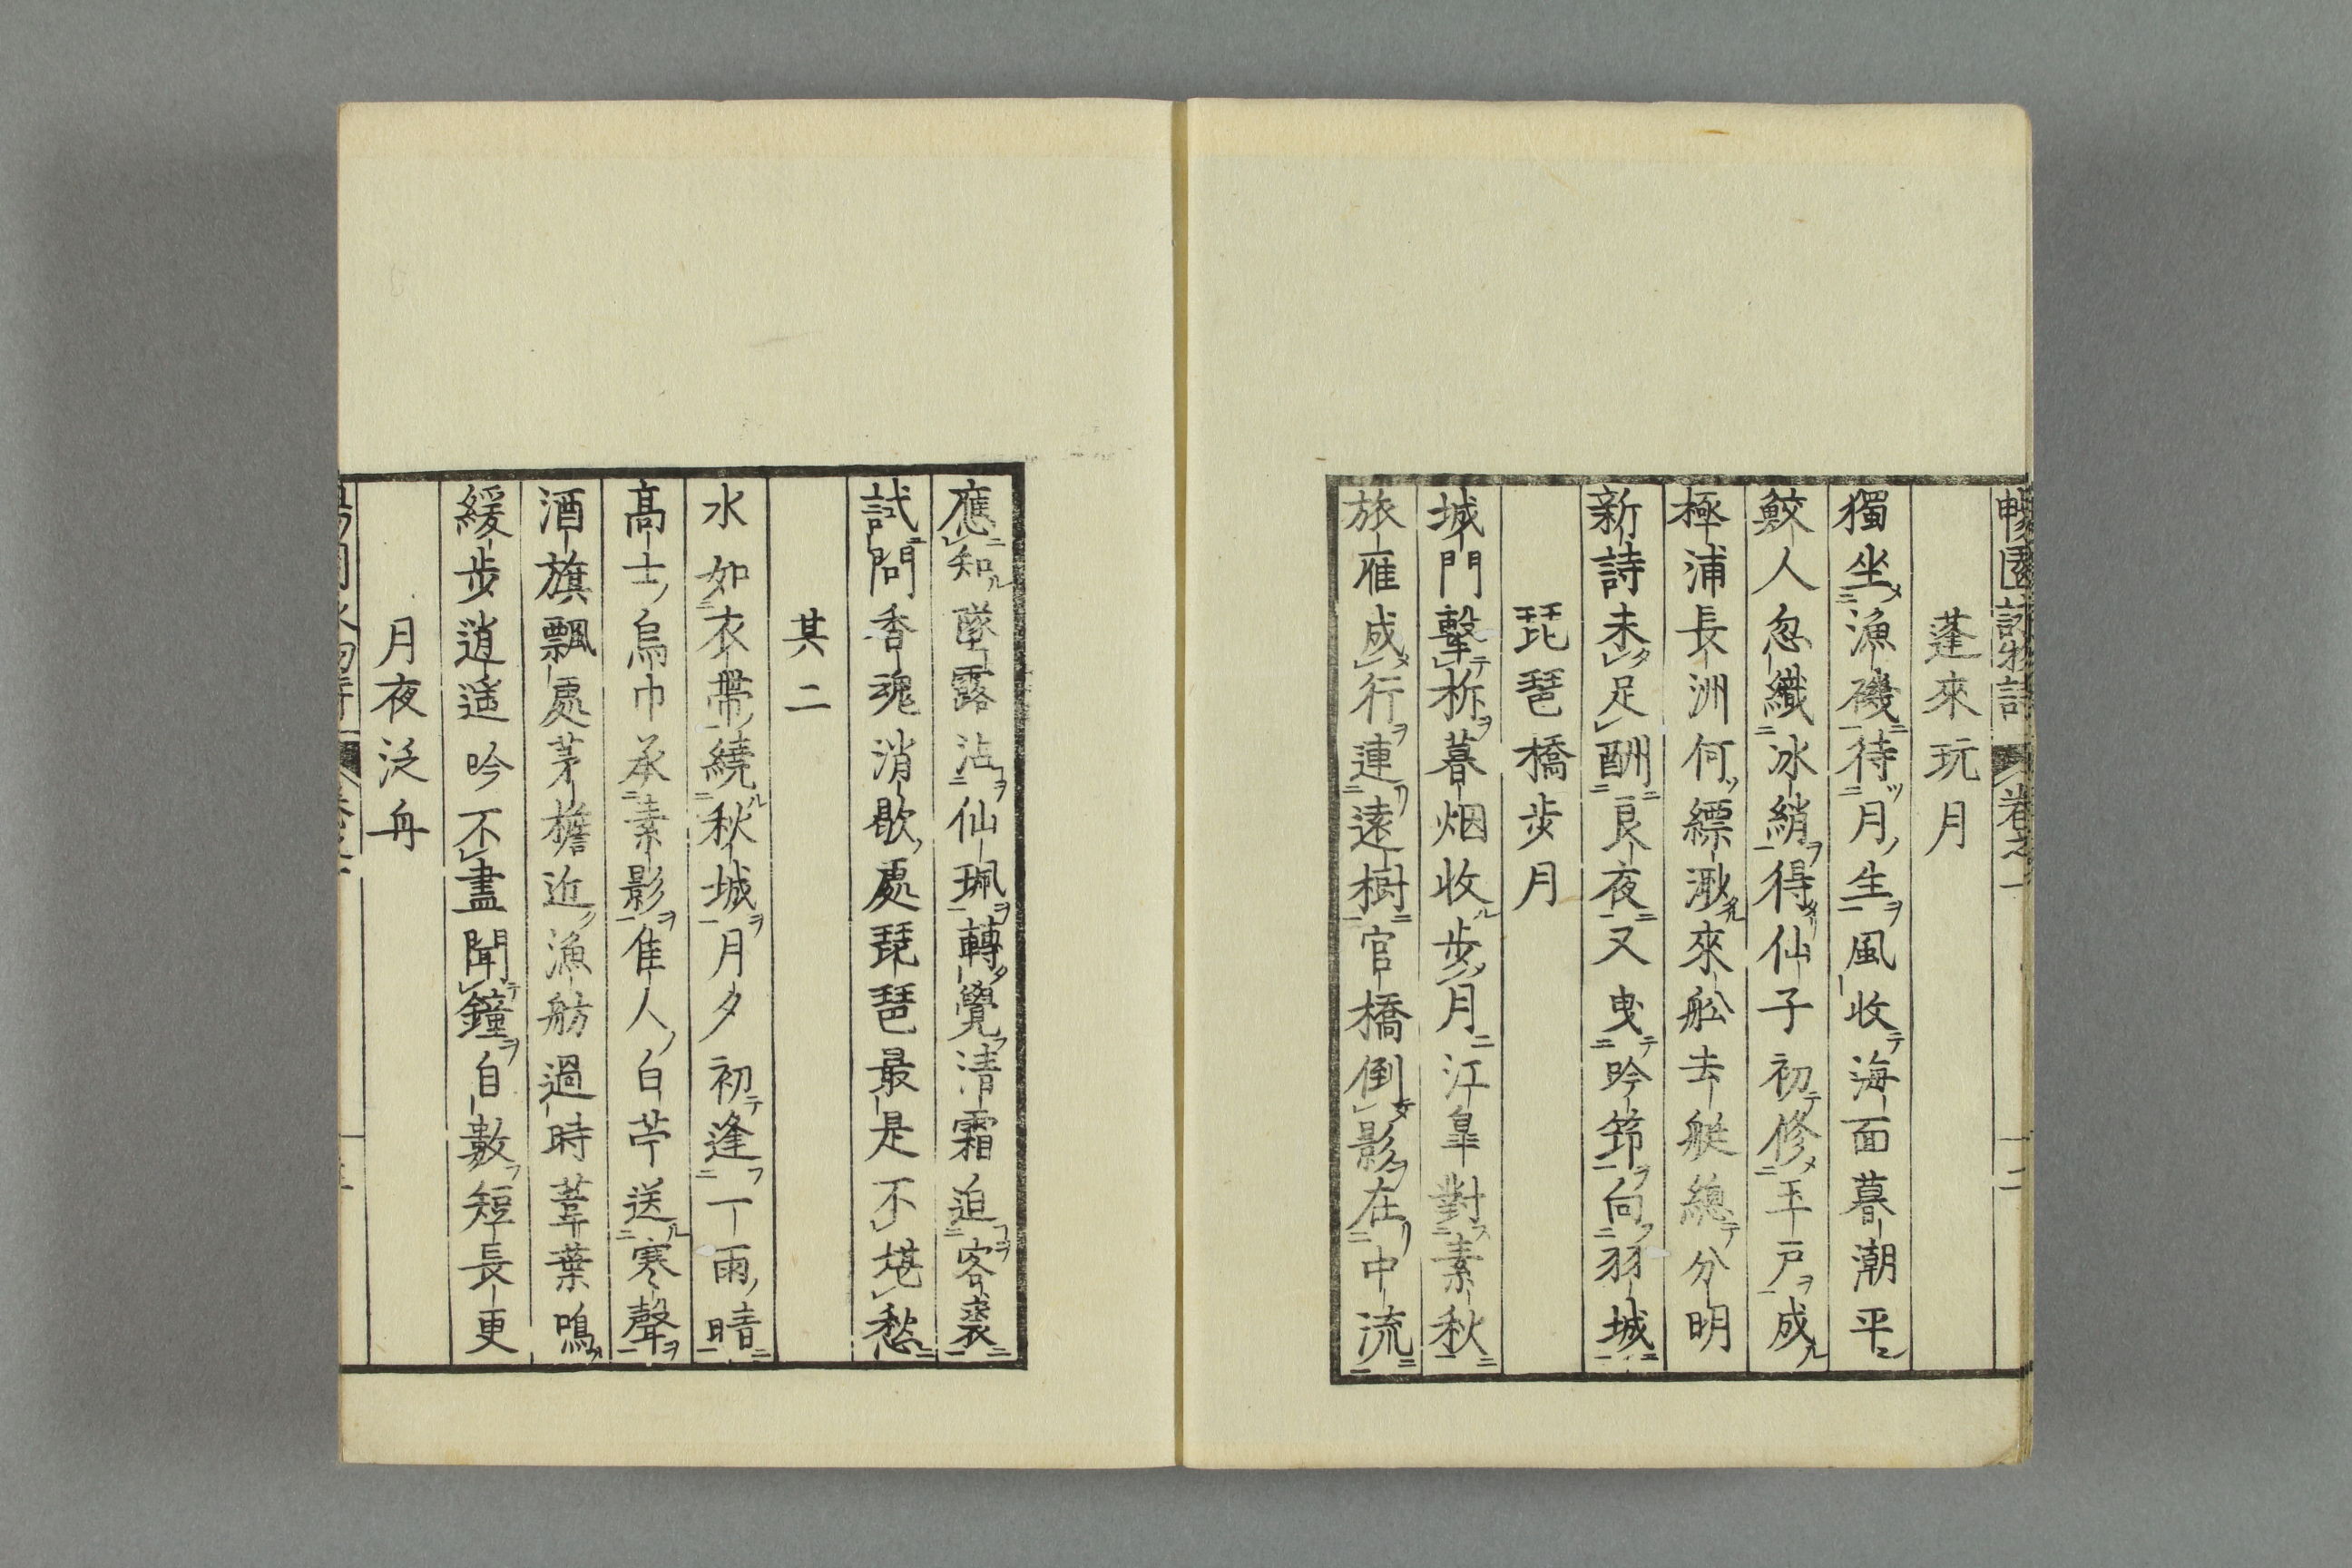 暢園詠物詩 卷之一 十二
蓬來玩月
獨坐漁磯待月生風收海面暮潮平
鮫人忽織冰綃得仙子初修玉戸成
極浦長洲何縹渺來舩去艇總分明
新詩未足酬良夜又曳吟筇向羽城
琵琶橋歩月
城門擊柝暮烟收歩月江皐對素秋
旅雁成行連遠樹官橋倒影在中流
應知墜露沾仙珮轉覺清霜迫客裘
試問香魂消歇處琵琶最是不堪愁
其二
水如衣帶繞秋城月夕初逢一雨晴
高士烏巾承素影隹人白苧送寒聲
酒旗飄處茅檐近漁舫過時葦葉鳴
緩歩逍遥吟不盡聞鐘自數短長更
月夜泛舟